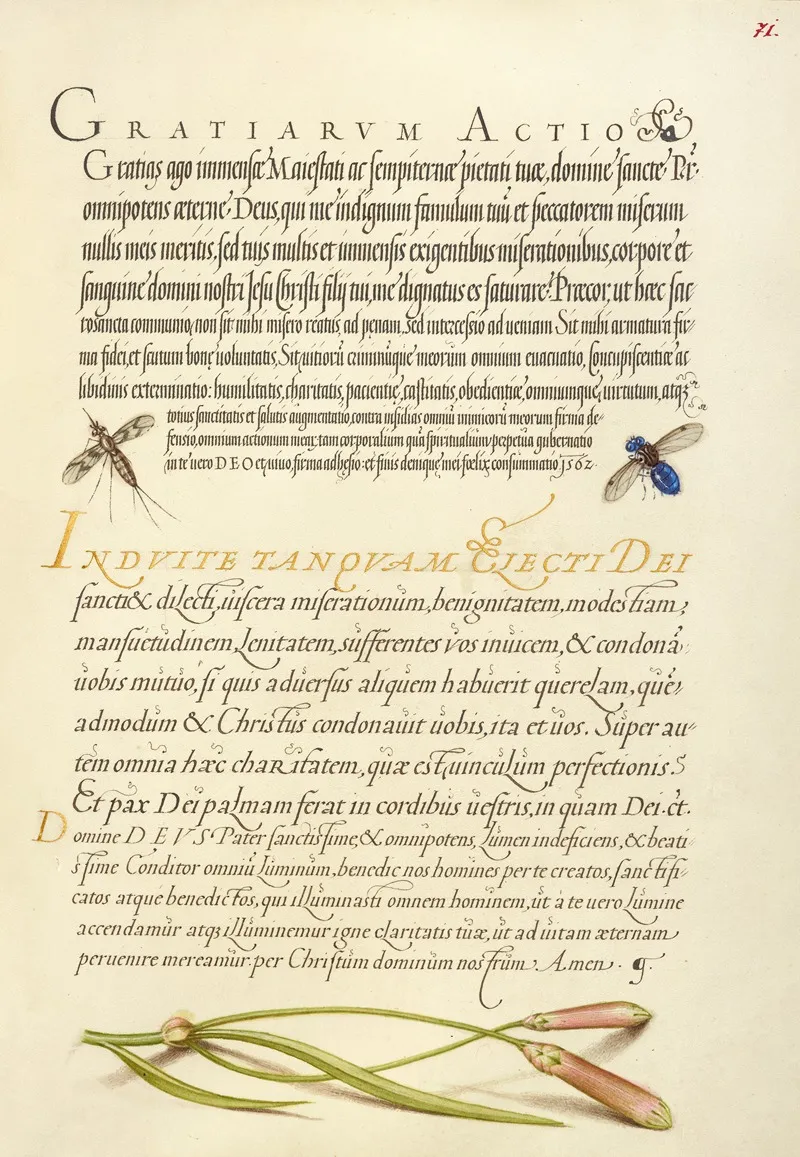 71.
GRATIARVM ACTIO
Gratias ago immensæ Maiestati ac sempiternæ pietati tuæ, domine sancte Pr̃.
omnipotens æterne Deus, qui me indignum famulum tuũ et peccatorem miserum
nullis meis meritis, sed tuis multis et immensis exigentibus miserationibus, corpore et
sanguine domini nostri Jesu Christi filij tui, me dignatus es saturare. Præcor, ut hæc sac
rosancta communio, non sit mihi misero reatus ad penam, sed intercessio ad ueniam Sit mihi armatura fir-
ma fidei, et scutum bonę uoluntatis, Sit uitiorũ criminũque meorum omnium euacuatio, Concupiscentiæ ac
libidinis exterminatio: humilitatis, charitatis, pacientię, castitatis, obedientiæ, omniumque uirtutum, atqȝ
totius sanctitatis et salutis augmentatio, contra insidias omniũ inimicorũ meorum firma de-
fensio, omnium actionum mearũ, tam corporalium quã spiritualium, perpetua gubernatio
in te uero DEO et uiuo, firma adhesio: et finis denique mei fœlix consummatio 1562.
INDVITE TANQVAM ELECTI DEI
sancti & dilecti, uiscera miserationum, benignitatem, modestiam,
mansuetudinem, lenitatem, sufferentes vos inuicem, & condonã
uobis mutuo, si quis aduersus aliquem habuerit querelam, que-
admodum & Christus condonauit uobis, ita et uos. Super au-
tem omnia hæc charitatem, quæ est uinculum perfectionis
Et pax Dei palmam ferat in cordibus uestris, in quam Dei. ct.
Domine DEVS Pater sanctissime, & omnipotens, Lumen indeficiens, & beati-
ssime Conditor omniũ luminum, benedic nos homines per te creatos, sanctifi-
catos atque benedictos, qui illuminasti omnem hominem, ut a te uero lumine
accendamur atqȝ illuminemur igne claritatis tuæ, ut ad uitam æternam
peruenire mereamur. per Christum dominum nostrum. Amen.